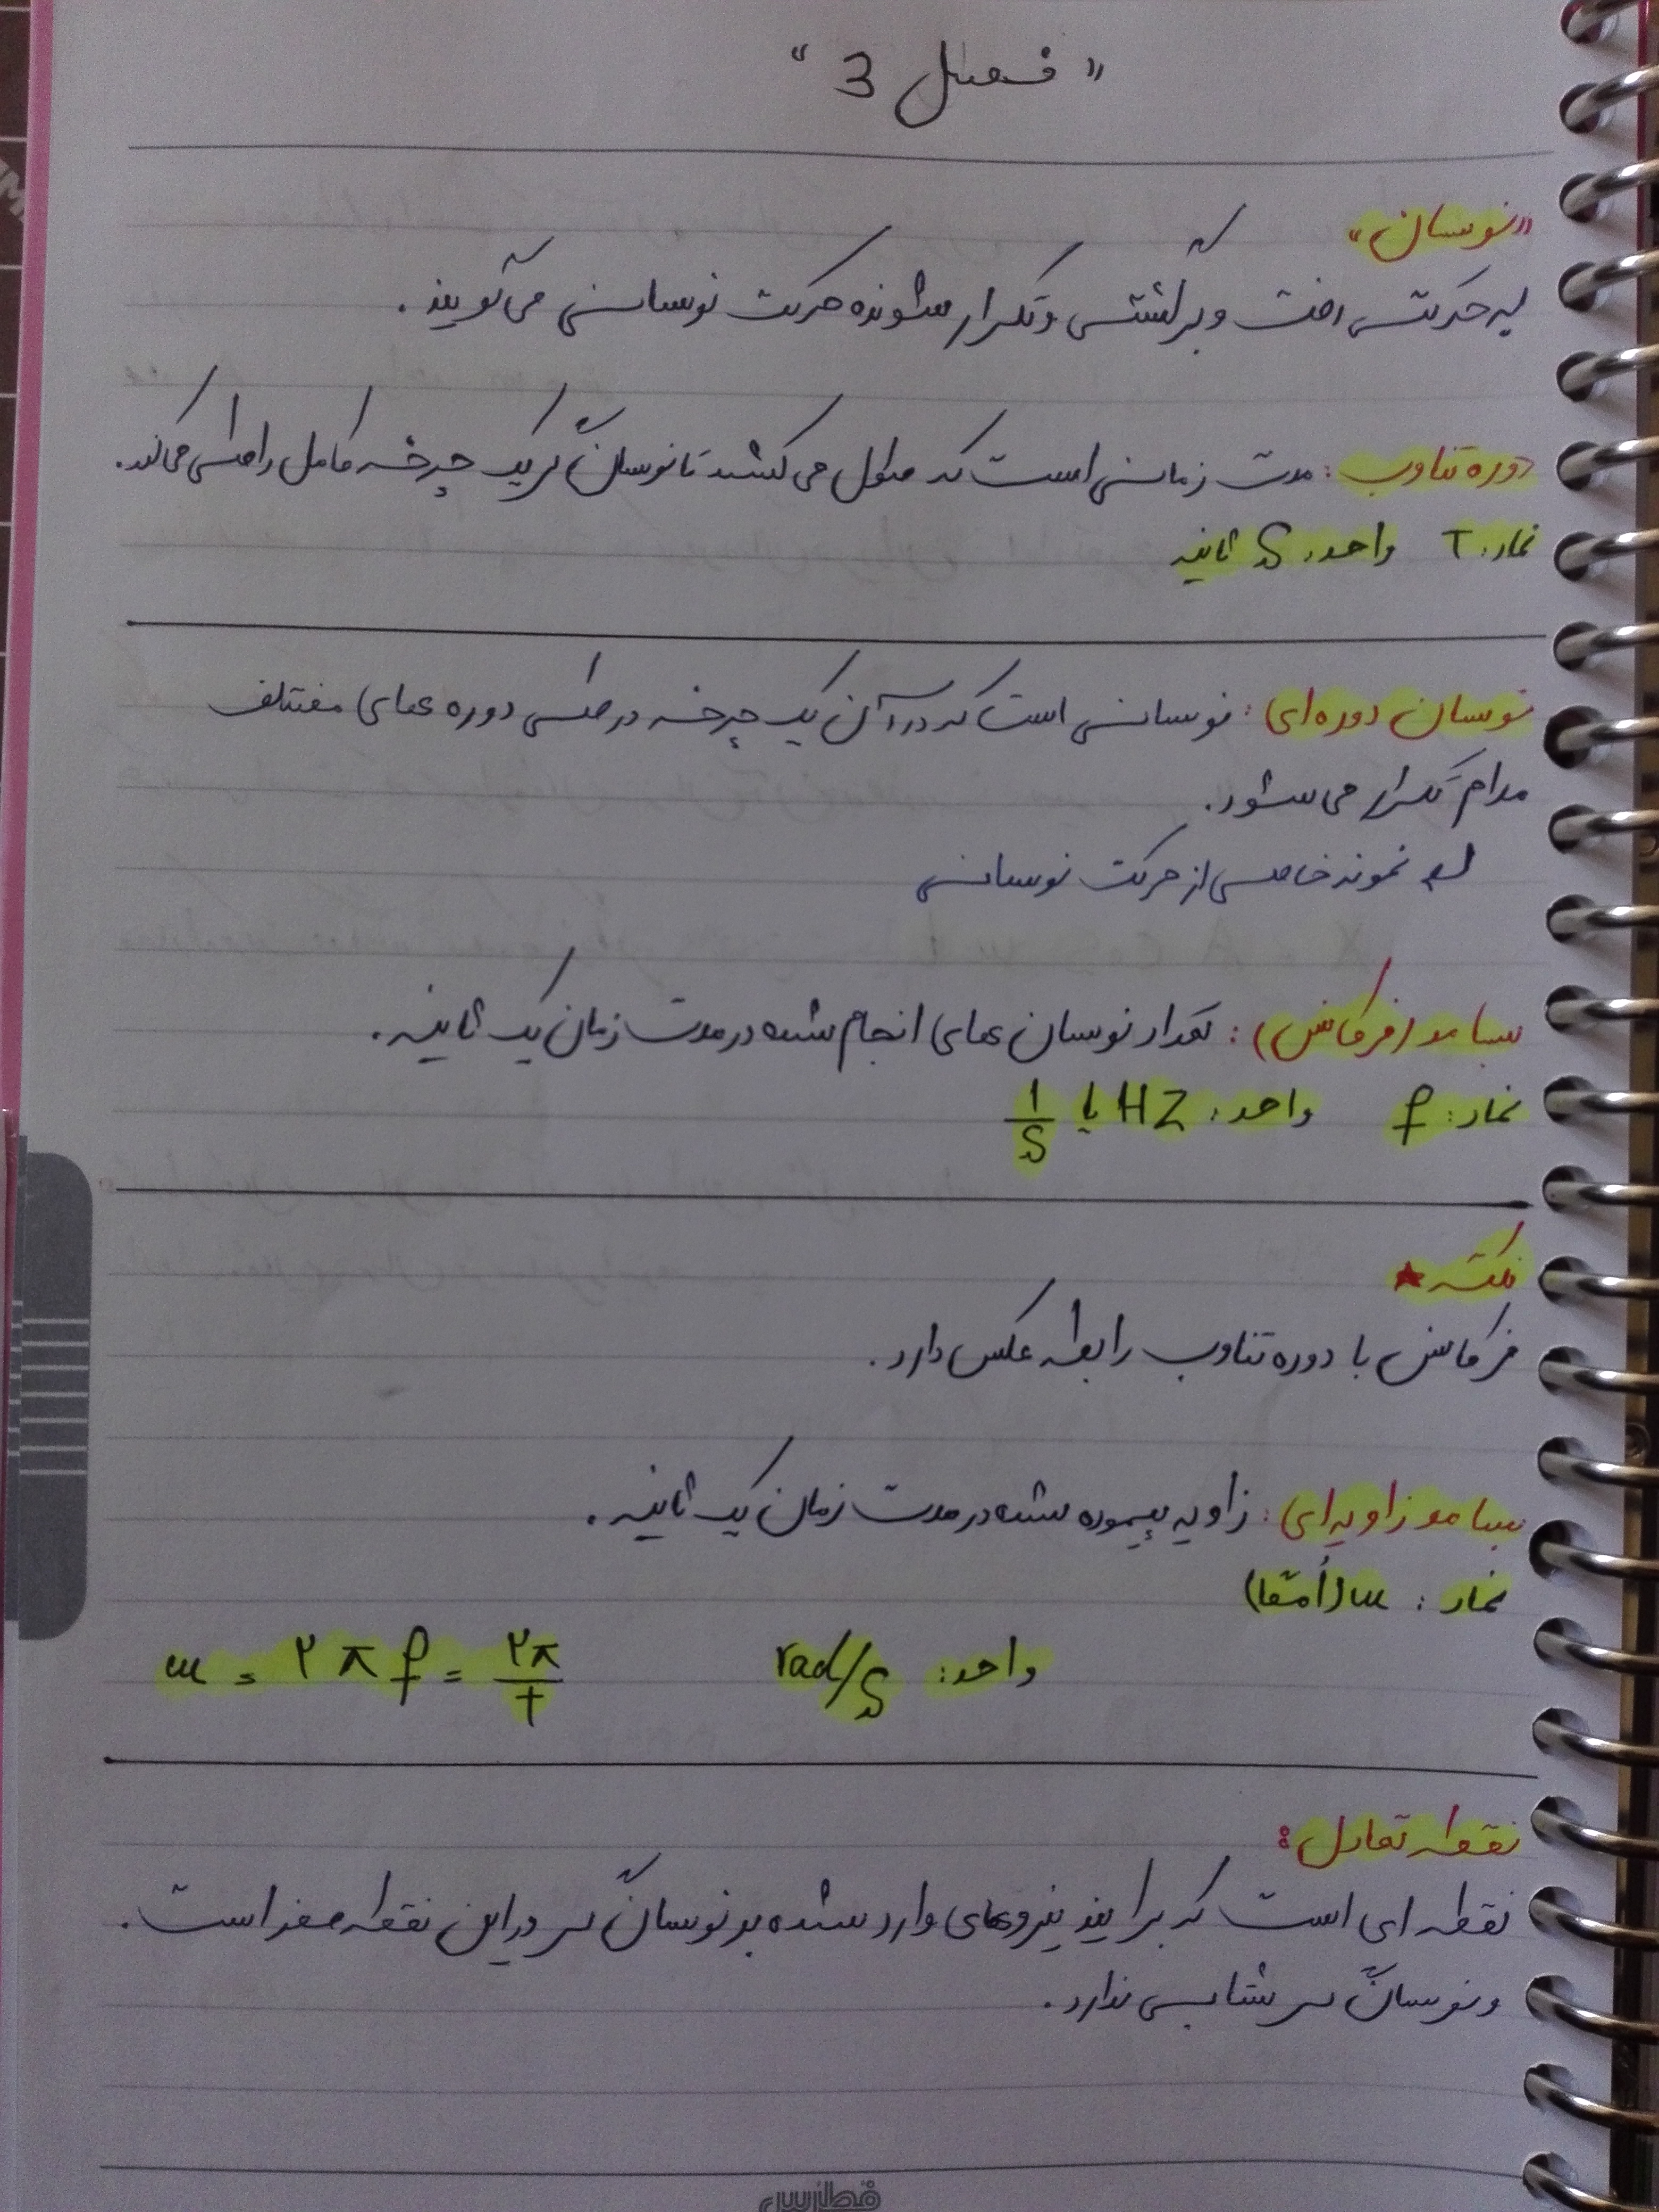 « فصل 3 »
«نوسان»
به حرکتی رفت و برگشتی و تکرار شونده حرکت نوسانی می گویند.
دوره تناوب : مدت زمانی است که طول می کشد تا نوسانگر یک چرخه کامل را طی می کند.
نماد: T واحد: S ثانیه
نوسان دوره ای : نوسانی است که در آن یک چرخه در طی دوره های مختلف
مدام تکرار می شود.
نمونه خاصی از حرکت نوسانی
بسامد (فرکانس) : تعداد نوسان های انجام شده در مدت زمان یک ثانیه.
نماد: f واحد: HZ یا 1/S
نکته ★
فرکانس با دوره تناوب رابطه عکس دارد.
بسامد زاویه ای : زاویه پیموده شده در مدت زمان یک ثانیه.
نماد : ω (اُمگا)
واحد: rad/s ω = ۲π f = ۲π/T
نقطه تعادل :
نقطه ای است که برایند نیروهای وارد شده بر نوسانگر در این نقطه صفر است.
و نوسانگر شتابی ندارد.